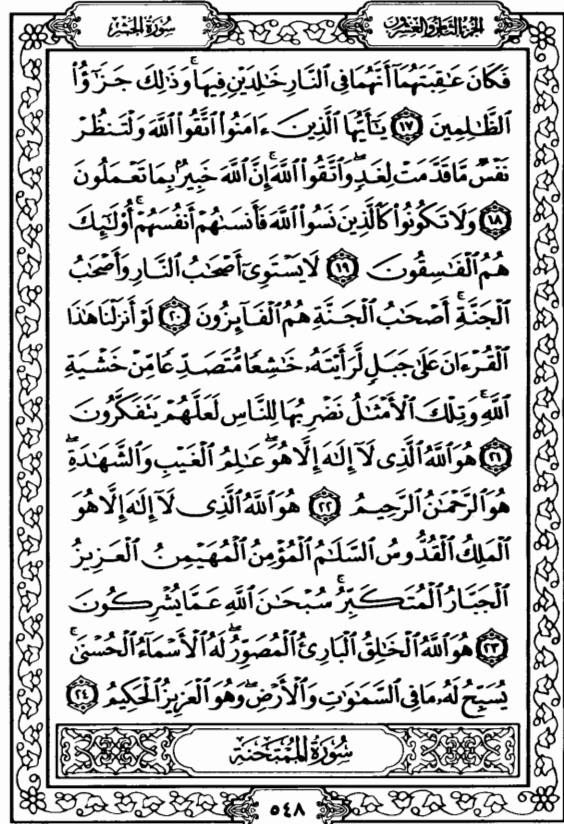 الجزء الثامن والعشرون
سورة الحشر
فَكَانَ عَٰقِبَتَهُمَآ أَنَّهُمَا فِي ٱلنَّارِ خَٰلِدَيْنِ فِيهَاۚ وَذَٰلِكَ جَزَٰٓؤُا۟
ٱلظَّٰلِمِينَ ١٧ يَٰٓأَيُّهَا ٱلَّذِينَ ءَامَنُوا۟ ٱتَّقُوا۟ ٱللَّهَ وَلْتَنظُرْ
نَفْسٌ مَّا قَدَّمَتْ لِغَدٍۖ وَٱتَّقُوا۟ ٱللَّهَۚ إِنَّ ٱللَّهَ خَبِيرٌۢ بِمَا تَعْمَلُونَ
١٨ وَلَا تَكُونُوا۟ كَٱلَّذِينَ نَسُوا۟ ٱللَّهَ فَأَنسَىٰهُمْ أَنفُسَهُمْۚ أُو۟لَٰٓئِكَ
هُمُ ٱلْفَٰسِقُونَ ١٩ لَا يَسْتَوِىٓ أَصْحَٰبُ ٱلنَّارِ وَأَصْحَٰبُ
ٱلْجَنَّةِۚ أَصْحَٰبُ ٱلْجَنَّةِ هُمُ ٱلْفَآئِزُونَ ٢٠ لَوْ أَنزَلْنَا هَٰذَا
ٱلْقُرْءَانَ عَلَىٰ جَبَلٍ لَّرَأَيْتَهُۥ خَٰشِعًا مُّتَصَدِّعًا مِّنْ خَشْيَةِ
ٱللَّهِۚ وَتِلْكَ ٱلْأَمْثَٰلُ نَضْرِبُهَا لِلنَّاسِ لَعَلَّهُمْ يَتَفَكَّرُونَ
٢١ هُوَ ٱللَّهُ ٱلَّذِى لَآ إِلَٰهَ إِلَّا هُوَۖ عَٰلِمُ ٱلْغَيْبِ وَٱلشَّهَٰدَةِۖ
هُوَ ٱلرَّحْمَٰنُ ٱلرَّحِيمُ ٢٢ هُوَ ٱللَّهُ ٱلَّذِى لَآ إِلَٰهَ إِلَّا هُوَ
ٱلْمَلِكُ ٱلْقُدُّوسُ ٱلسَّلَٰمُ ٱلْمُؤْمِنُ ٱلْمُهَيْمِنُ ٱلْعَزِيزُ
ٱلْجَبَّارُ ٱلْمُتَكَبِّرُۚ سُبْحَٰنَ ٱللَّهِ عَمَّا يُشْرِكُونَ
٢٣ هُوَ ٱللَّهُ ٱلْخَٰلِقُ ٱلْبَارِئُ ٱلْمُصَوِّرُۖ لَهُ ٱلْأَسْمَآءُ ٱلْحُسْنَىٰۚ
يُسَبِّحُ لَهُۥ مَا فِي ٱلسَّمَٰوَٰتِ وَٱلْأَرْضِۖ وَهُوَ ٱلْعَزِيزُ ٱلْحَكِيمُ ٢٤
سُورَةُ الْمُمْتَحَنَةِ
٥٤٨